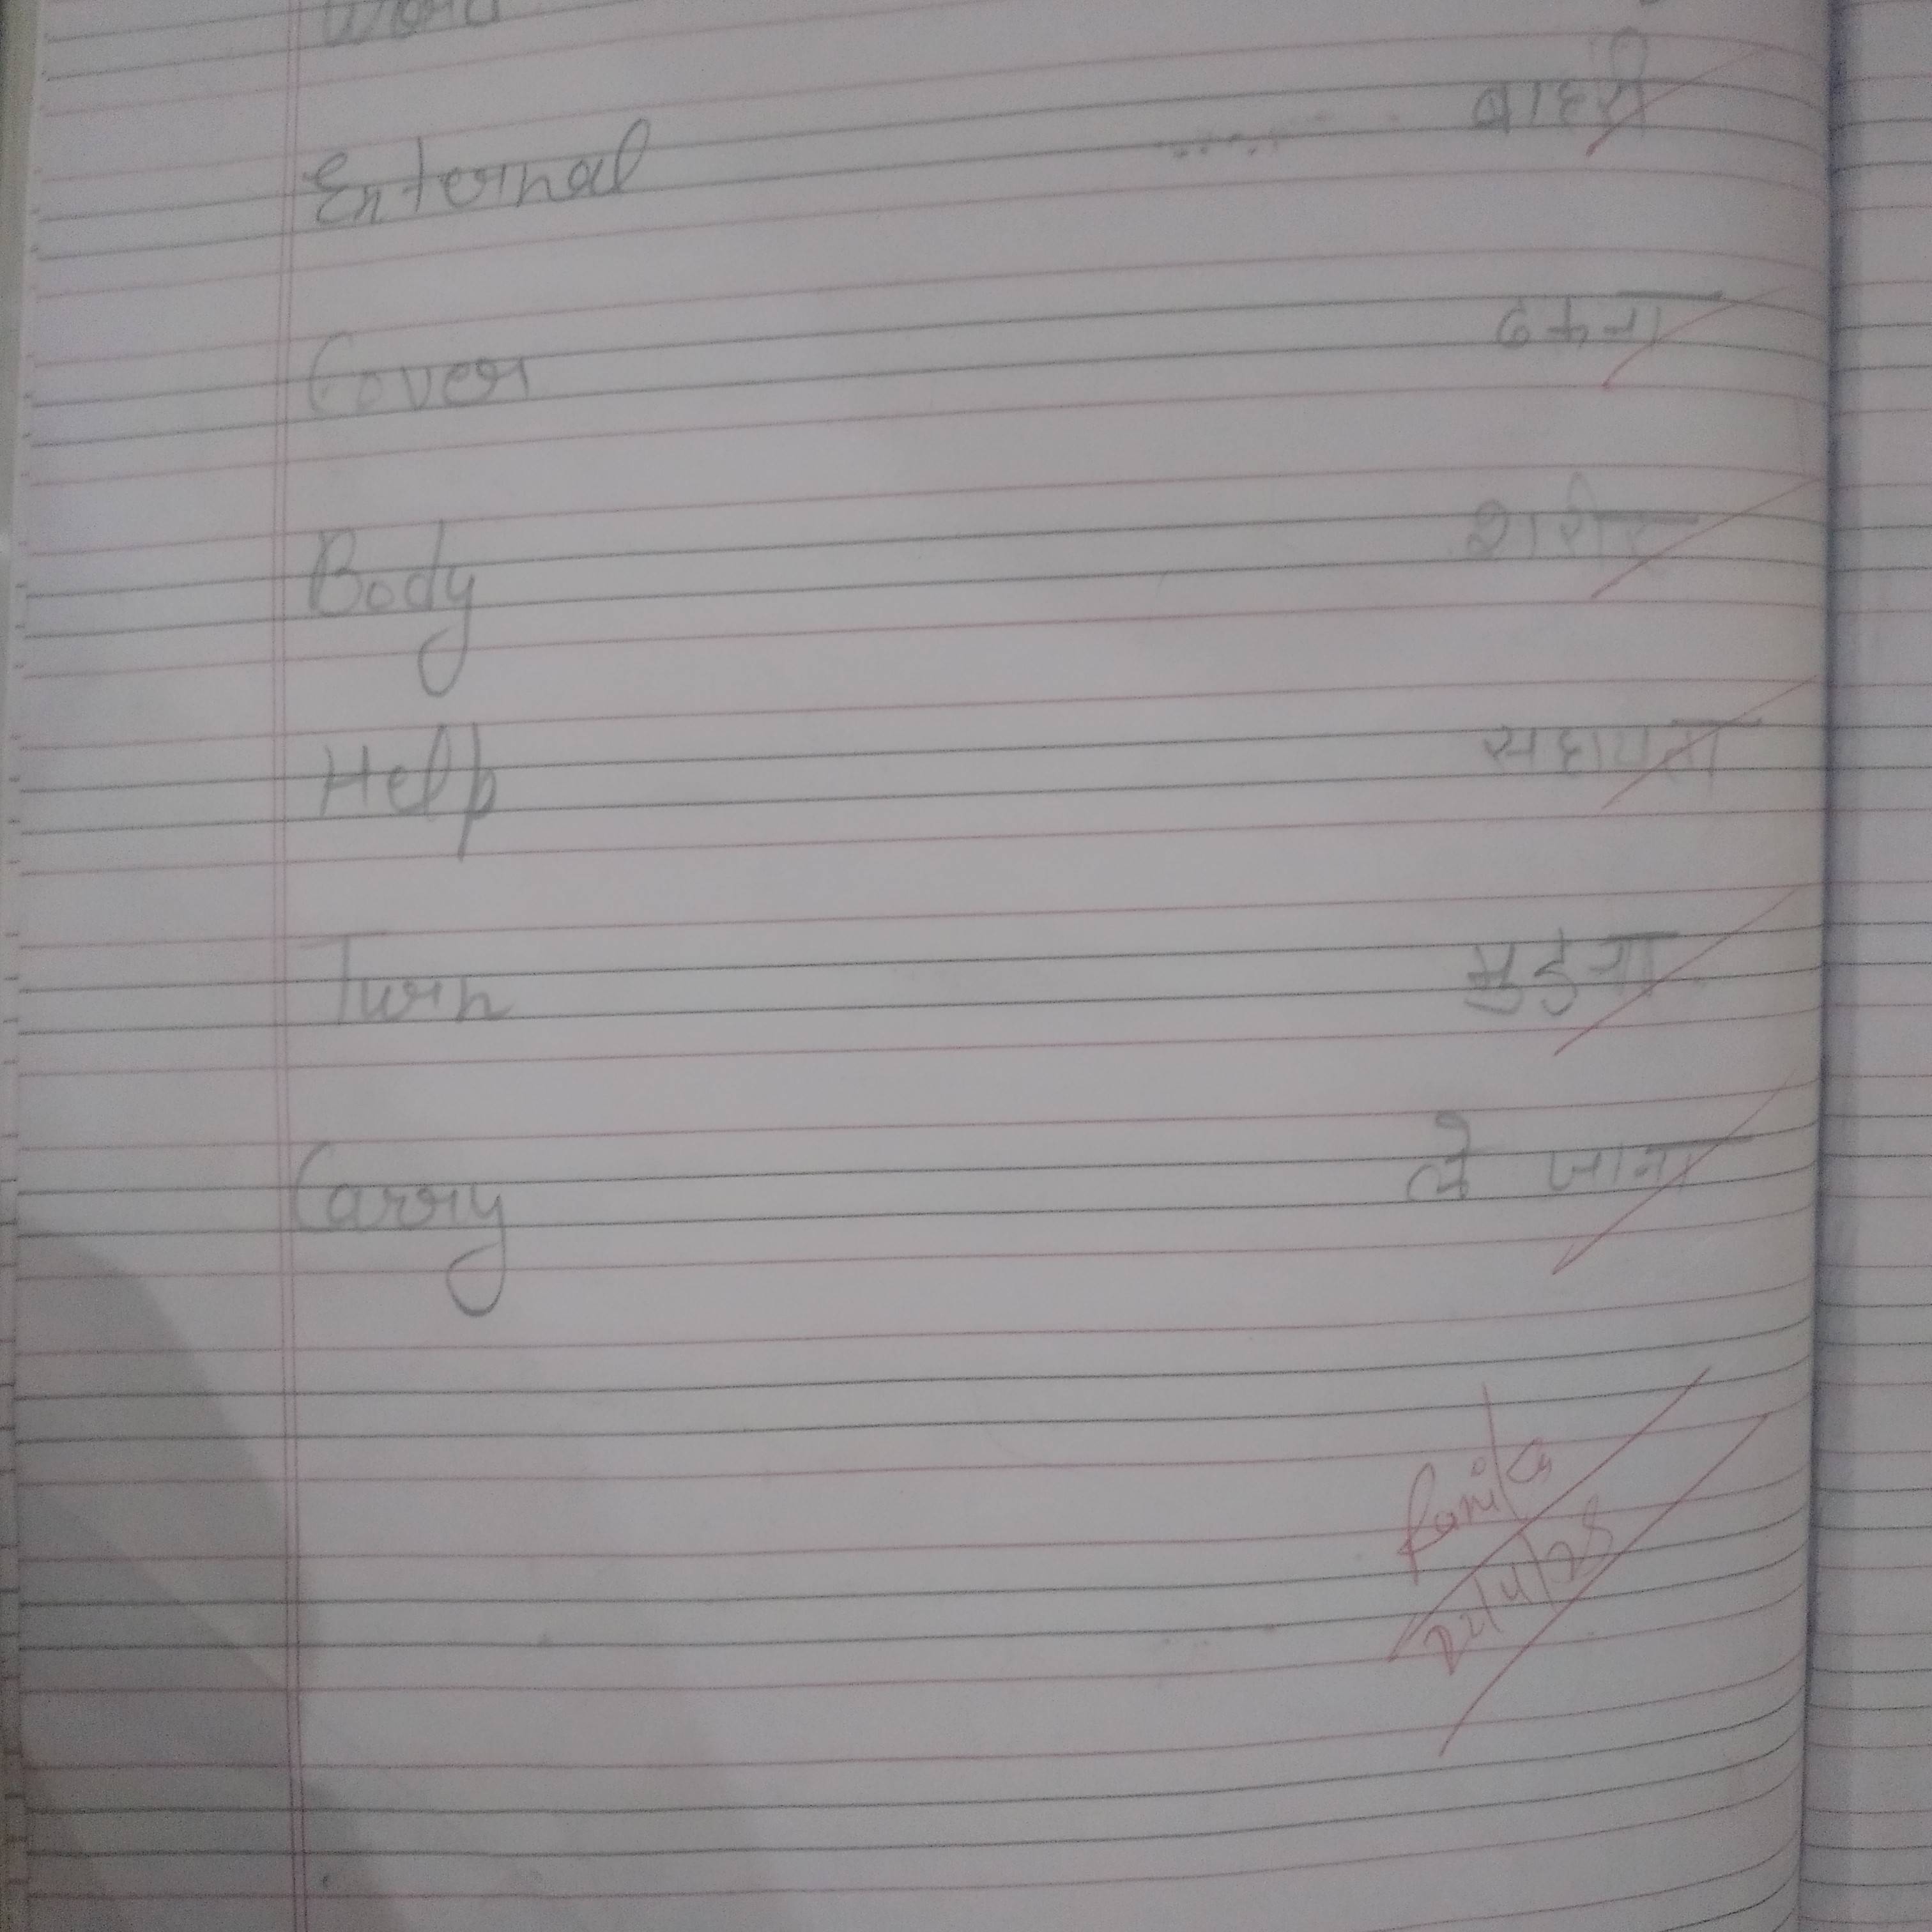 External बाहरी
Cover ढकना
Body शरीर
Help सहायता
Turn मुड़ना
Carry ले जाना
22/4/25